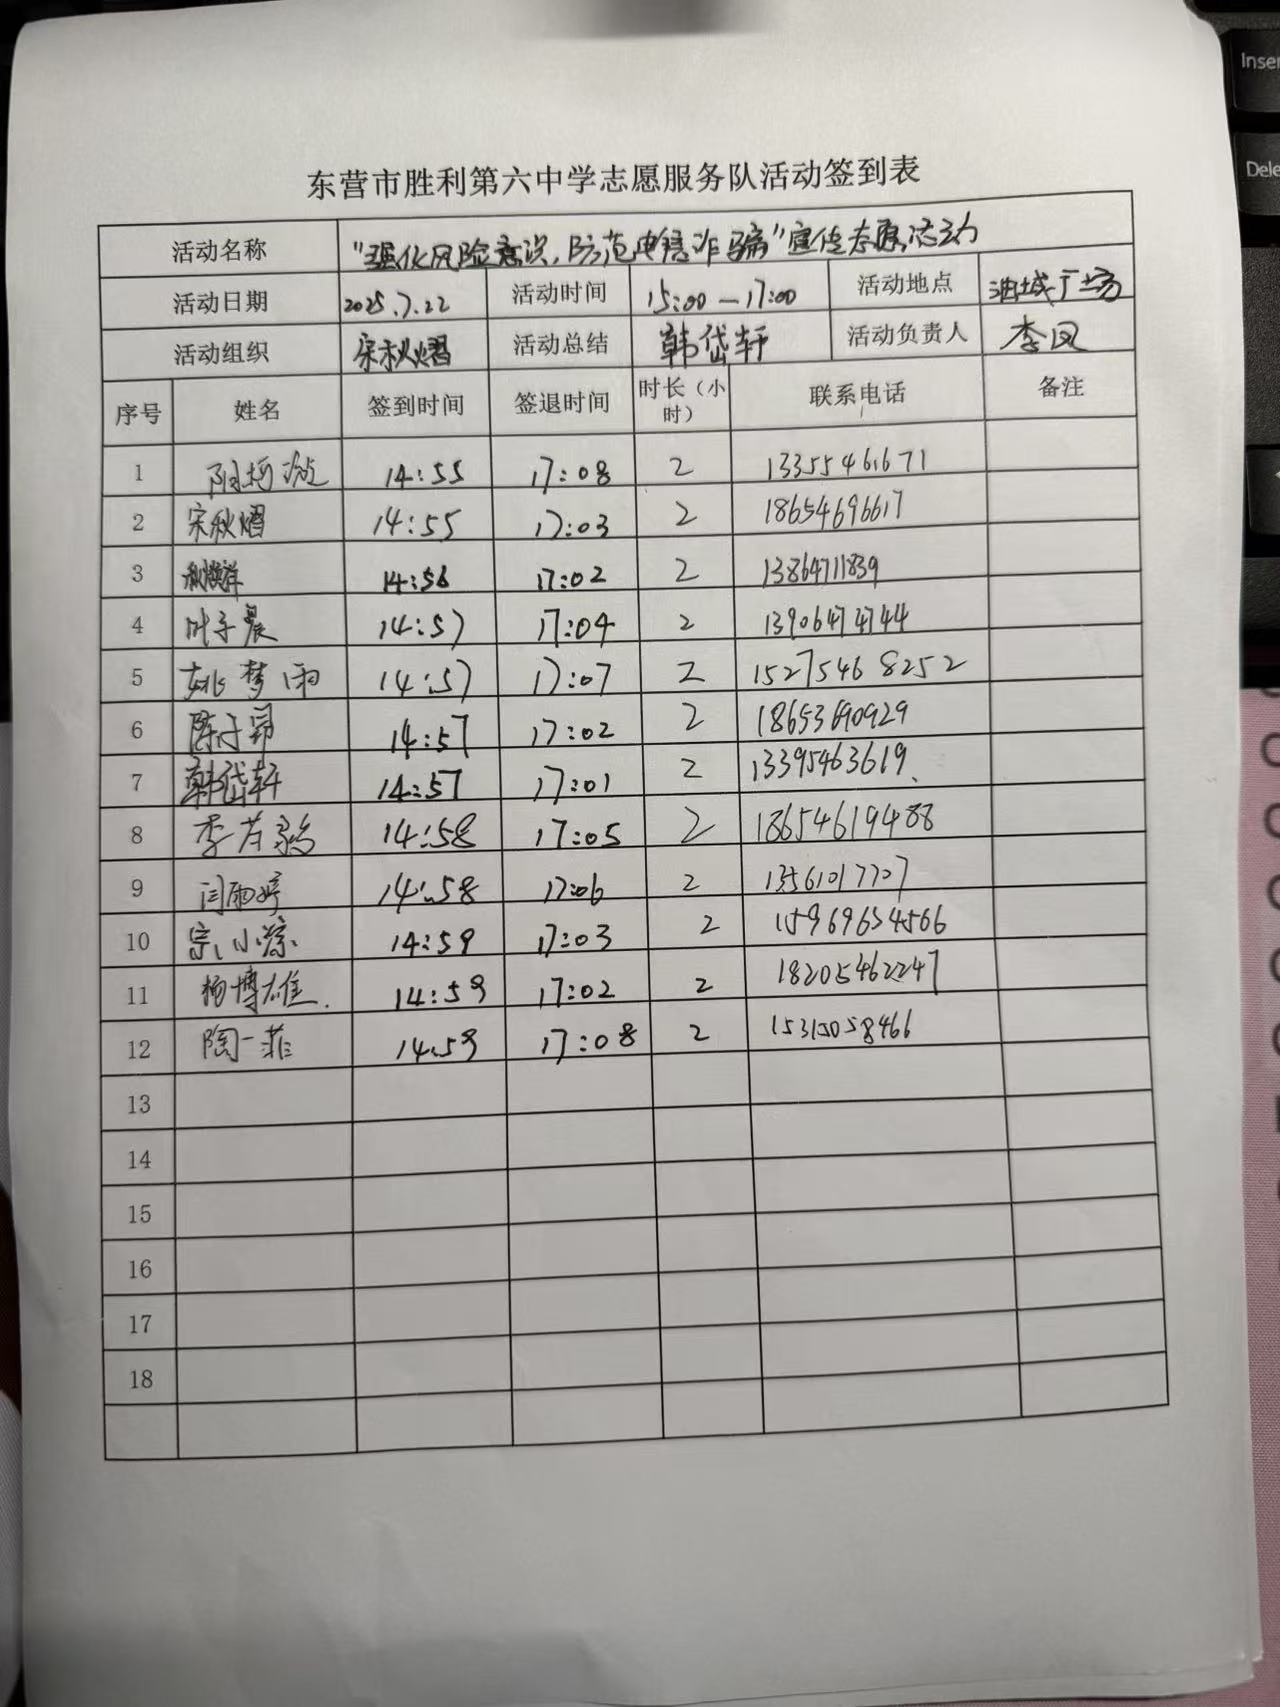 东营市胜利第六中学志愿服务队活动签到表
活动名称 "强化风险意识,防范电信诈骗"宣传志愿活动
活动日期 2025.7.22 活动时间 15:00—17:00 活动地点 油城广场
活动组织 宋秋熠 活动总结 韩岱轩 活动负责人 李凤
序号 姓名 签到时间 签退时间 时长(小时) 联系电话 备注
1 14:55 17:08 2 13355461671
2 宋秋熠 14:55 17:03 2 18654696617
3 14:56 17:02 2 13864711839
4 叶子晨 14:57 17:04 2 13906474744
5 姚梦雨 14:57 17:07 2 15275468252
6 陈子昂 14:57 17:02 2 18653690929
7 韩岱轩 14:57 17:01 2 13395463619
8 14:58 17:05 2 18654619488
9 闫雨婷 14:58 17:06 2 13561017707
10 宗小淙 14:59 17:03 2 15969654566
11 杨博雄 14:59 17:02 2 18205462247
12 陶一菲 14:59 17:08 2 15315058466
13
14
15
16
17
18
Inser
Dele